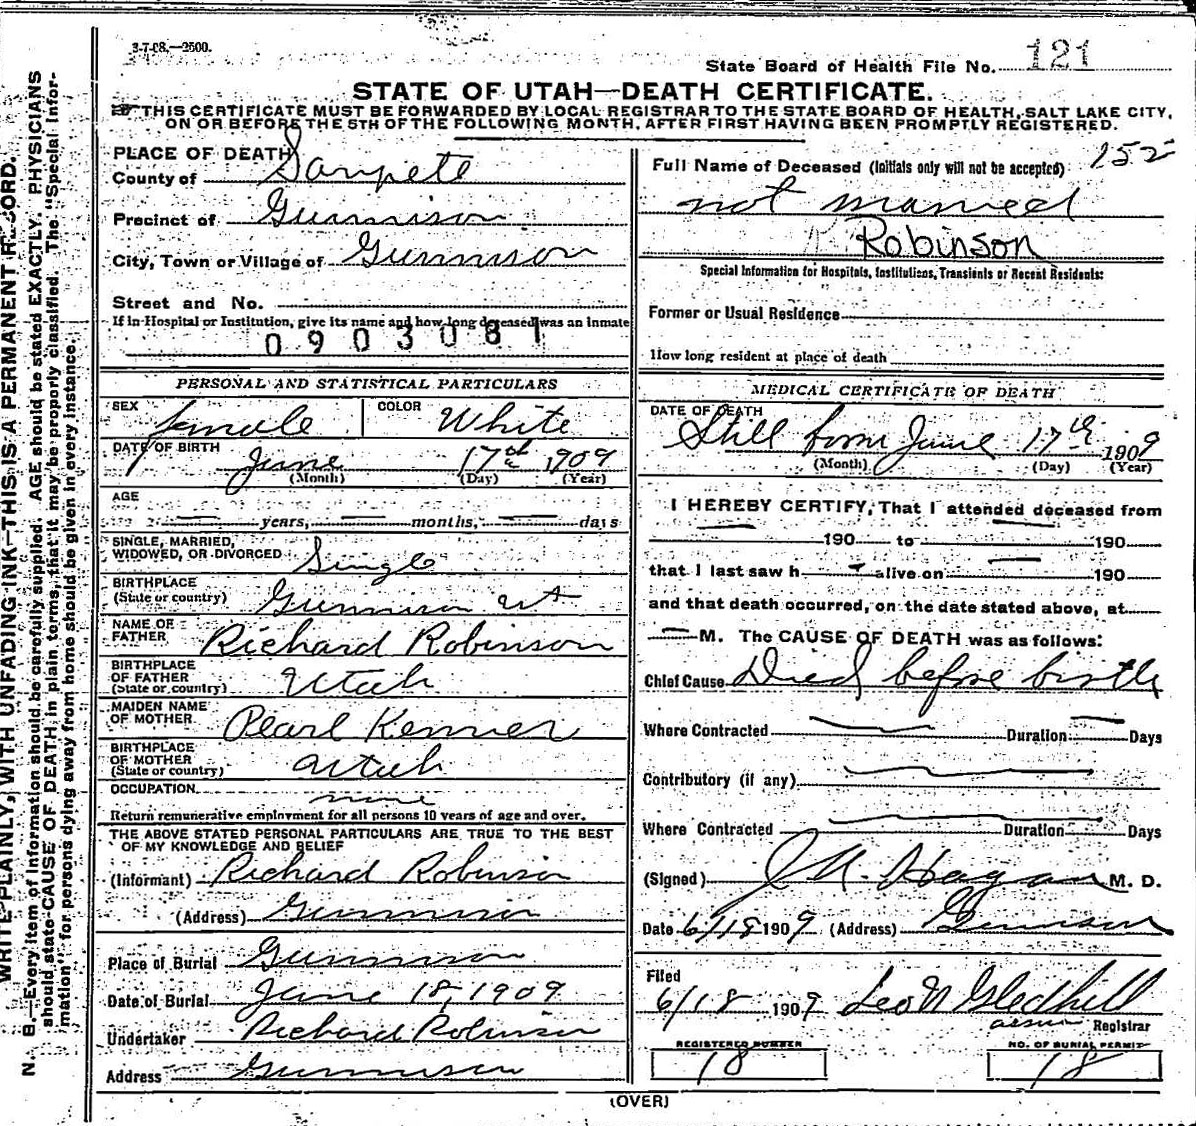 3-7-08.—2500.
State Board of Health File No. 121
STATE OF UTAH—DEATH CERTIFICATE.
THIS CERTIFICATE MUST BE FORWARDED BY LOCAL REGISTRAR TO THE STATE BOARD OF HEALTH, SALT LAKE CITY,
ON OR BEFORE THE 5TH OF THE FOLLOWING MONTH, AFTER FIRST HAVING BEEN PROMPTLY REGISTERED.
WRITE PLAINLY, WITH UNFADING INK—THIS IS A PERMANENT RECORD.
N. B.—Every item of information should be carefully supplied. AGE should be stated EXACTLY. PHYSICIANS
should state CAUSE OF DEATH in plain terms, that it may be properly classified. The "Special Infor-
mation" for persons dying away from home should be given in every instance.
PLACE OF DEATH
County of Sanpete
Precinct of Gunnison
City, Town or Village of Gunnison
Street and No.
If in Hospital or Institution, give its name and how long deceased was an inmate
0903081
PERSONAL AND STATISTICAL PARTICULARS
SEX female COLOR White
DATE OF BIRTH June 17th 1909
(Month) (Day) (Year)
AGE
years, months, days
SINGLE, MARRIED,
WIDOWED, OR DIVORCED Single
BIRTHPLACE
(State or country) Gunnison Ut
NAME OF
FATHER Richard Robinson
BIRTHPLACE
OF FATHER
(State or country) Utah
MAIDEN NAME
OF MOTHER Pearl Kenner
BIRTHPLACE
OF MOTHER
(State or country) Utah
OCCUPATION
none
Return remunerative employment for all persons 10 years of age and over.
THE ABOVE STATED PERSONAL PARTICULARS ARE TRUE TO THE BEST
OF MY KNOWLEDGE AND BELIEF
(Informant) Richard Robinson
(Address) Gunnison
Place of Burial Gunnison
Date of Burial June 18, 1909
Undertaker Richard Robinson
Address Gunnison
Full Name of Deceased (Initials only will not be accepted) 152
not married
Robinson
Special Information for Hospitals, Institutions, Transients or Recent Residents:
Former or Usual Residence
How long resident at place of death
MEDICAL CERTIFICATE OF DEATH
DATE OF DEATH
Still born June 17th 1909
(Month) (Day) (Year)
I HEREBY CERTIFY, That I attended deceased from
190 to 190
that I last saw h alive on 190
and that death occurred, on the date stated above, at
M. The CAUSE OF DEATH was as follows:
Chief Cause Died before birth
Where Contracted Duration Days
Contributory (if any)
Where Contracted Duration Days
(Signed) J M. Hagan M. D.
Date 6/18 1909 (Address) Gunnison
Filed
6/18 1909 Leo N Gledhill
Registrar
REGISTERED NUMBER
18
NO. OF BURIAL PERMIT
18
(OVER)